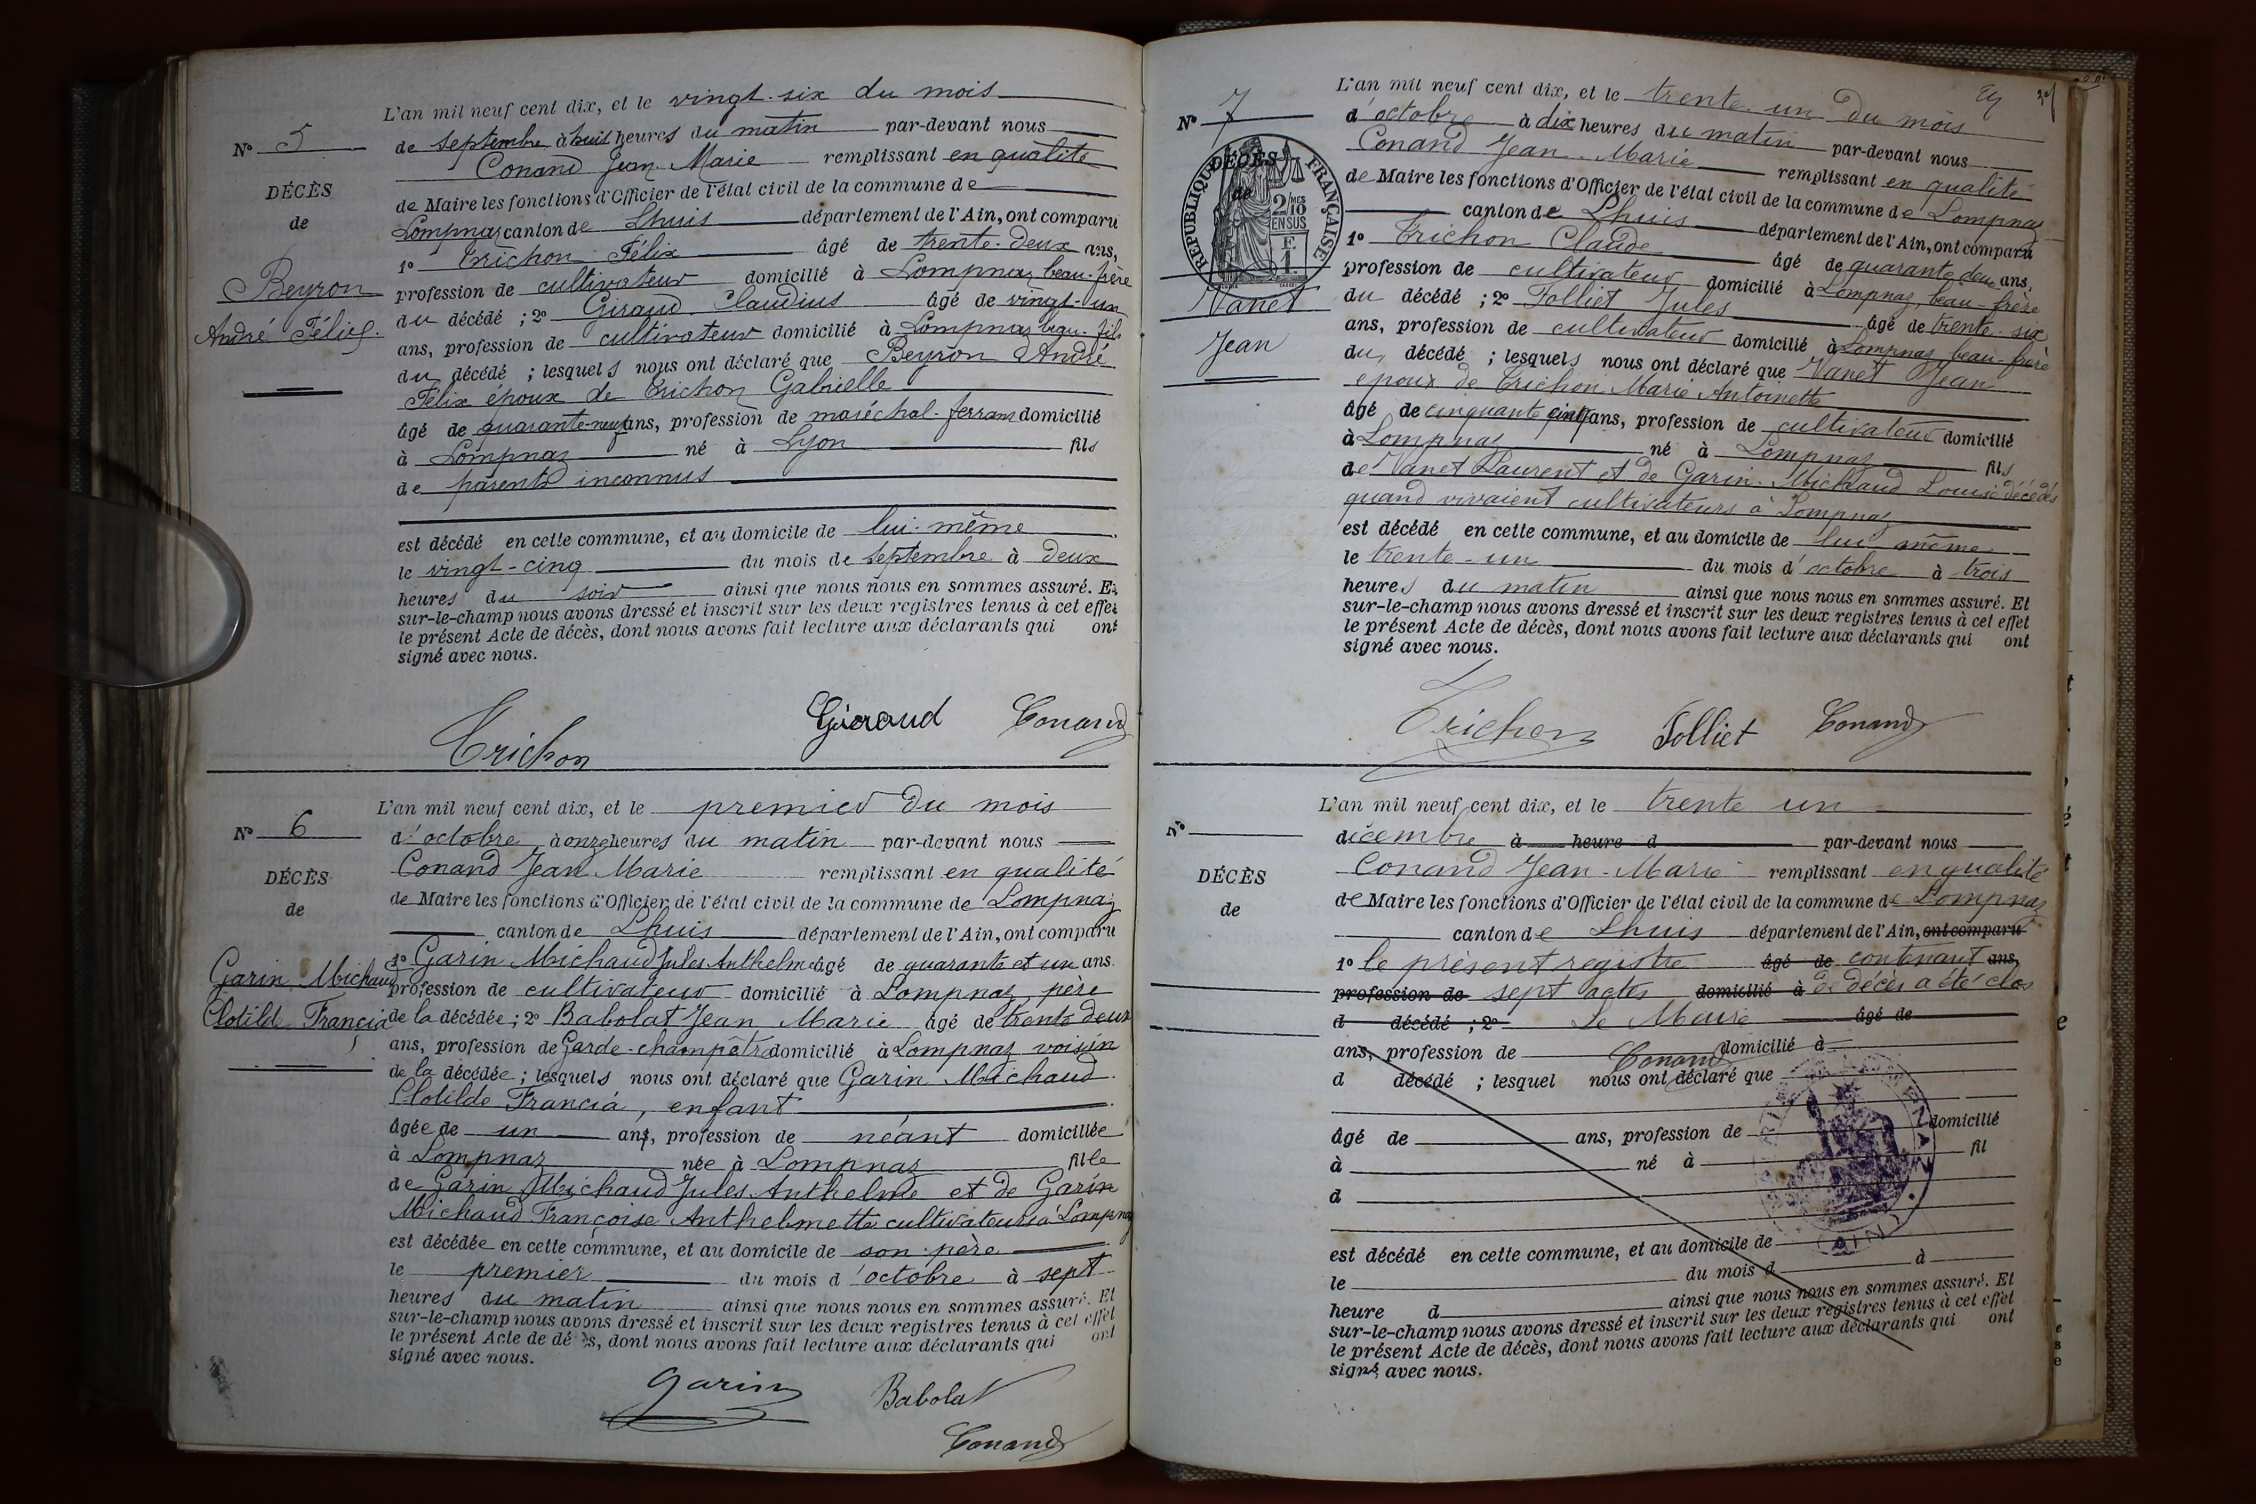 L'an mil neuf cent dix, et le vingt-six du mois
N° 5
de septembre à huit heures du matin par-devant nous
Conand Jean Marie remplissant en qualité
DÉCÈS
de Maire les fonctions d'Officier de l'état civil de la commune de
de
Lompnaz canton de Lhuis département de l'Ain, ont comparu
1° Trichon Félix âgé de trente-deux ans,
Beyron
profession de cultivateur domicilié à Lompnaz beau-frère
du décédé ; 2° Giraud Claudius âgé de vingt-un
André Félix
ans, profession de cultivateur domicilié à Lompnaz beau-fils
du décédé ; lesquels nous ont déclaré que Beyron André
Félix époux de Trichon Gabrielle
âgé de quarante-neuf ans, profession de maréchal-ferrant domicilié
à Lompnaz né à Lyon fils
de parents inconnus
est décédé en cette commune, et au domicile de lui-même
le vingt-cinq du mois de septembre à deux
heures du soir ainsi que nous nous en sommes assuré. Et
sur-le-champ nous avons dressé et inscrit sur les deux registres tenus à cet effet
le présent Acte de décès, dont nous avons fait lecture aux déclarants qui ont
signé avec nous.
Trichon Giraud Conand
L'an mil neuf cent dix, et le premier du mois
N° 6
d'octobre à onze heures du matin par-devant nous
Conand Jean Marie remplissant en qualité
DÉCÈS
de Maire les fonctions d'Officier de l'état civil de la commune de Lompnaz
de
canton de Lhuis département de l'Ain, ont comparu
1° Garin Michaud Jules Anthelme âgé de quarante et un ans
Garin Michaud
profession de cultivateur domicilié à Lompnaz père
Clotilde Francia
de la décédée ; 2° Babolat Jean Marie âgé de trente deux
ans, profession de Garde-champêtre domicilié à Lompnaz voisin
de la décédée ; lesquels nous ont déclaré que Garin Michaud
Clotilde Francia, enfant
âgée de un ans, profession de néant domiciliée
à Lompnaz née à Lompnaz fille
de Garin Michaud Jules Anthelme et de Garin
Michaud Françoise Anthelmette cultivateurs à Lompnaz
est décédée en cette commune, et au domicile de son père
le premier du mois d'octobre à sept
heures du matin ainsi que nous nous en sommes assuré. Et
sur-le-champ nous avons dressé et inscrit sur les deux registres tenus à cet effet
le présent Acte de décès, dont nous avons fait lecture aux déclarants qui ont
signé avec nous.
Garin Babolat
Conand
L'an mil neuf cent dix, et le trente-un du mois
N° 7
d'octobre à dix heures du matin par-devant nous
Conand Jean-Marie remplissant en qualité
DÉCÈS
de
RÉPUBLIQUE FRANÇAISE
2/10 MES
EN SUS
F.
1.
de Maire les fonctions d'Officier de l'état civil de la commune de Lompnaz
canton de Lhuis département de l'Ain, ont comparu
1° Trichon Claude âgé de quarante deux ans,
profession de cultivateur domicilié à Lompnaz, beau-frère
Vanet
du décédé ; 2° Tolliet Jules âgé de trente-six
Jean
ans, profession de cultivateur domicilié à Lompnaz beau-frère
du décédé ; lesquels nous ont déclaré que Vanet Jean
époux de Trichon Marie Antoinette
âgé de cinquante cinq ans, profession de cultivateur domicilié
à Lompnaz né à Lompnaz fils
de Vanet Laurent et de Garin-Michaud Louise décédés
quand vivaient cultivateurs à Lompnaz
est décédé en cette commune, et au domicile de lui même
le trente-un du mois d'octobre à trois
heures du matin ainsi que nous nous en sommes assuré. Et
sur-le-champ nous avons dressé et inscrit sur les deux registres tenus à cet effet
le présent Acte de décès, dont nous avons fait lecture aux déclarants qui ont
signé avec nous.
Trichon Tolliet Conand
L'an mil neuf cent dix, et le trente un
N°
décembre à heure d par-devant nous
Conand Jean-Marie remplissant en qualité
DÉCÈS
de Maire les fonctions d'Officier de l'état civil de la commune de Lompnaz
de
canton de Lhuis département de l'Ain, ont comparu
1° le présent registre âgé de contenant ans,
profession de sept actes domicilié à de décès a été clos
d décédé ; 2° Le Maire âgé de
ans, profession de Conand domicilié à
d décédé ; lesquel nous ont déclaré que
âgé de ans, profession de domicilié
à né à fil
d
est décédé en cette commune, et au domicile de
le du mois d à
heure d ainsi que nous nous en sommes assuré. Et
sur-le-champ nous avons dressé et inscrit sur les deux registres tenus à cet effet
le présent Acte de décès, dont nous avons fait lecture aux déclarants qui ont
signé avec nous.
(AIN)